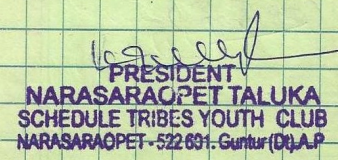 PRESIDENT
NARASARAOPET TALUKA
SCHEDULE TRIBES YOUTH CLUB
NARASARAOPET - 522 601. Guntur (Dt), A.P